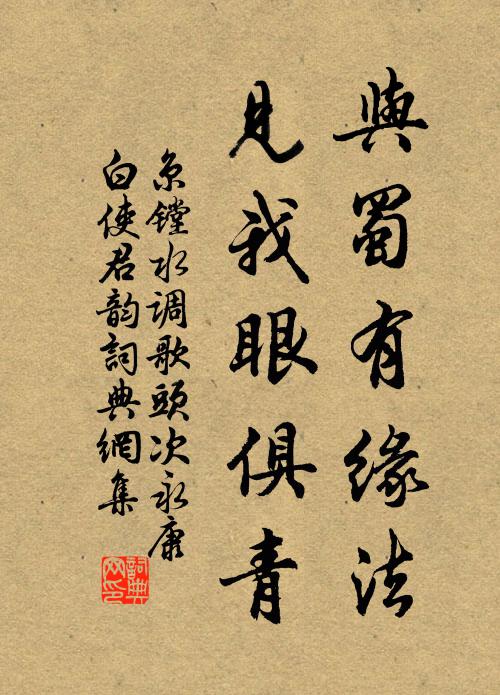 與蜀有緣法
見我眼俱青
京鏜水調歌頭次永康
白使君韵詞典網集
詞典
网印